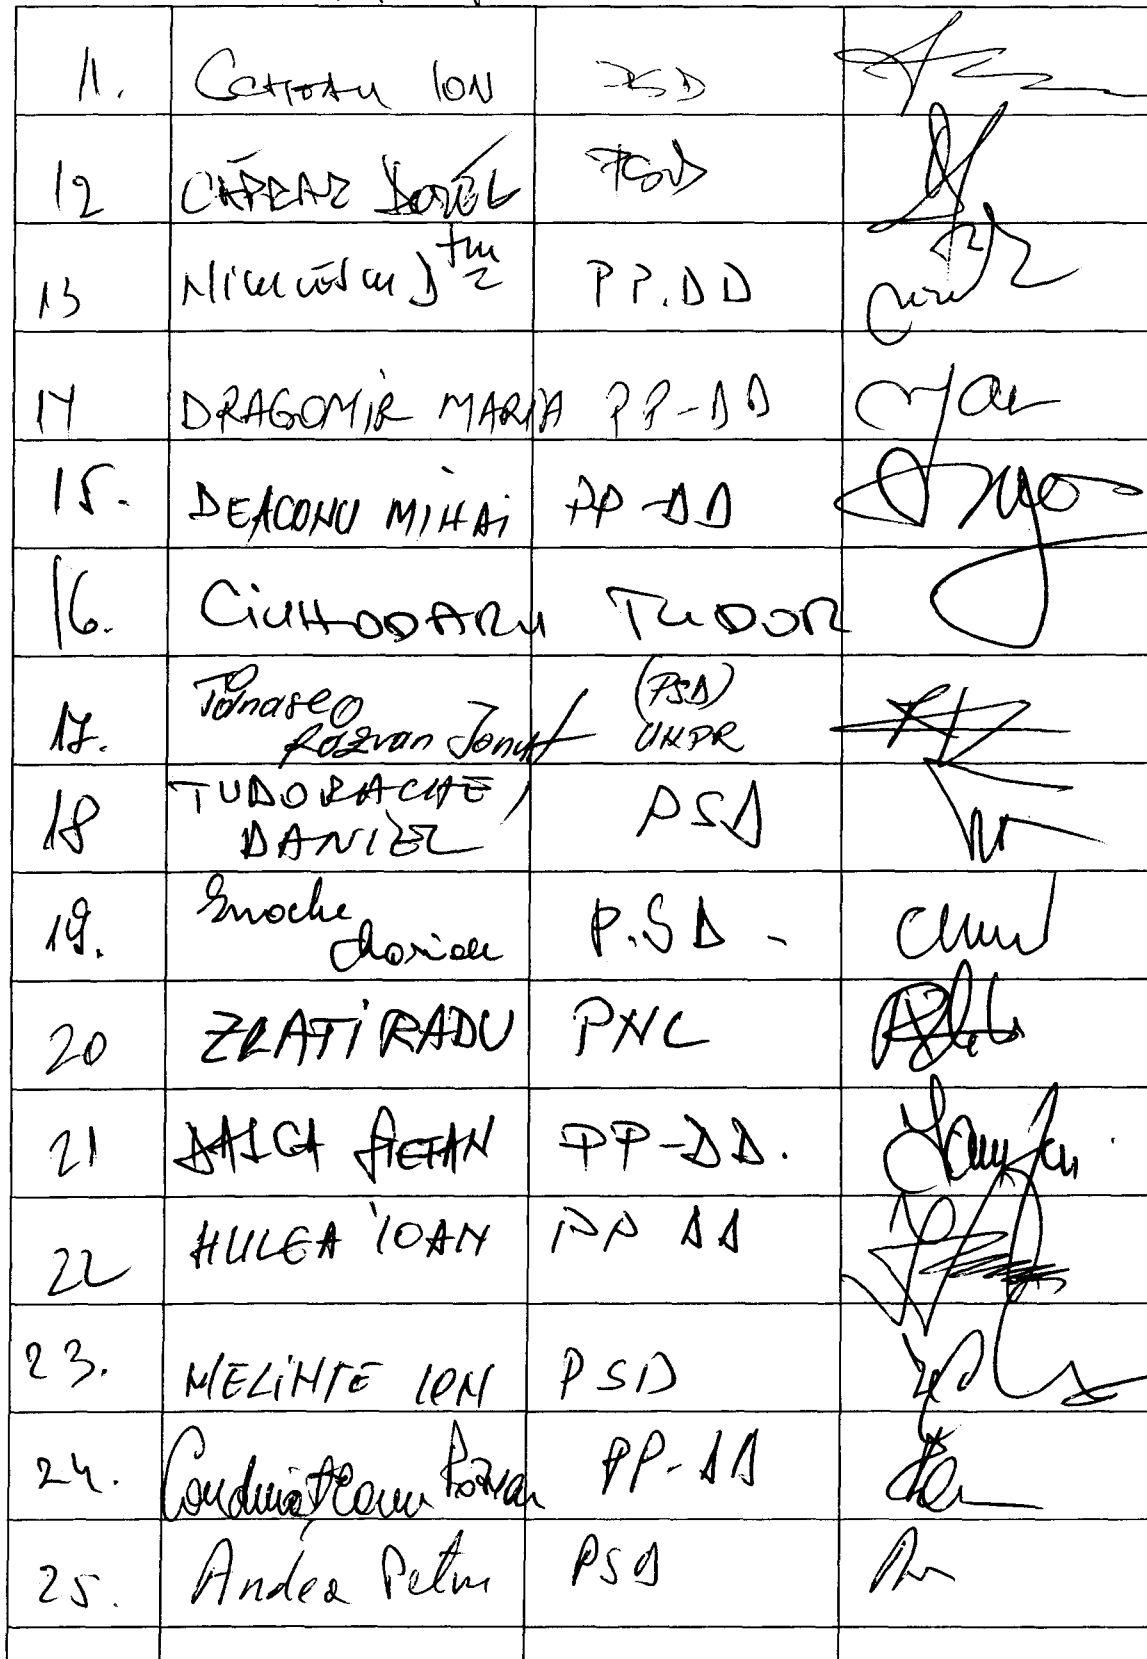 11. ION PSD
12 CĂPRAR DOREL PSD
13 PP.DD
14 DRAGOMIR MARIA PP-DD
15. DEACONU MIHAI PP-DD
16. CIUHODARU TUDOR
17. Tănase Răzvan Ionuț (PSD) UNPR
18 TUDORACHE DANIEL PSD
19. Enache Marian P.SD-
20 ZLATI RADU PNL
21 DALCA ȘTEFAN PP-DD.
22 HULEA IOAN PP DD
23. MELINTE ION PSD
24. Condurățeanu Răzvan PP-DD
25. Andea Petru PSD